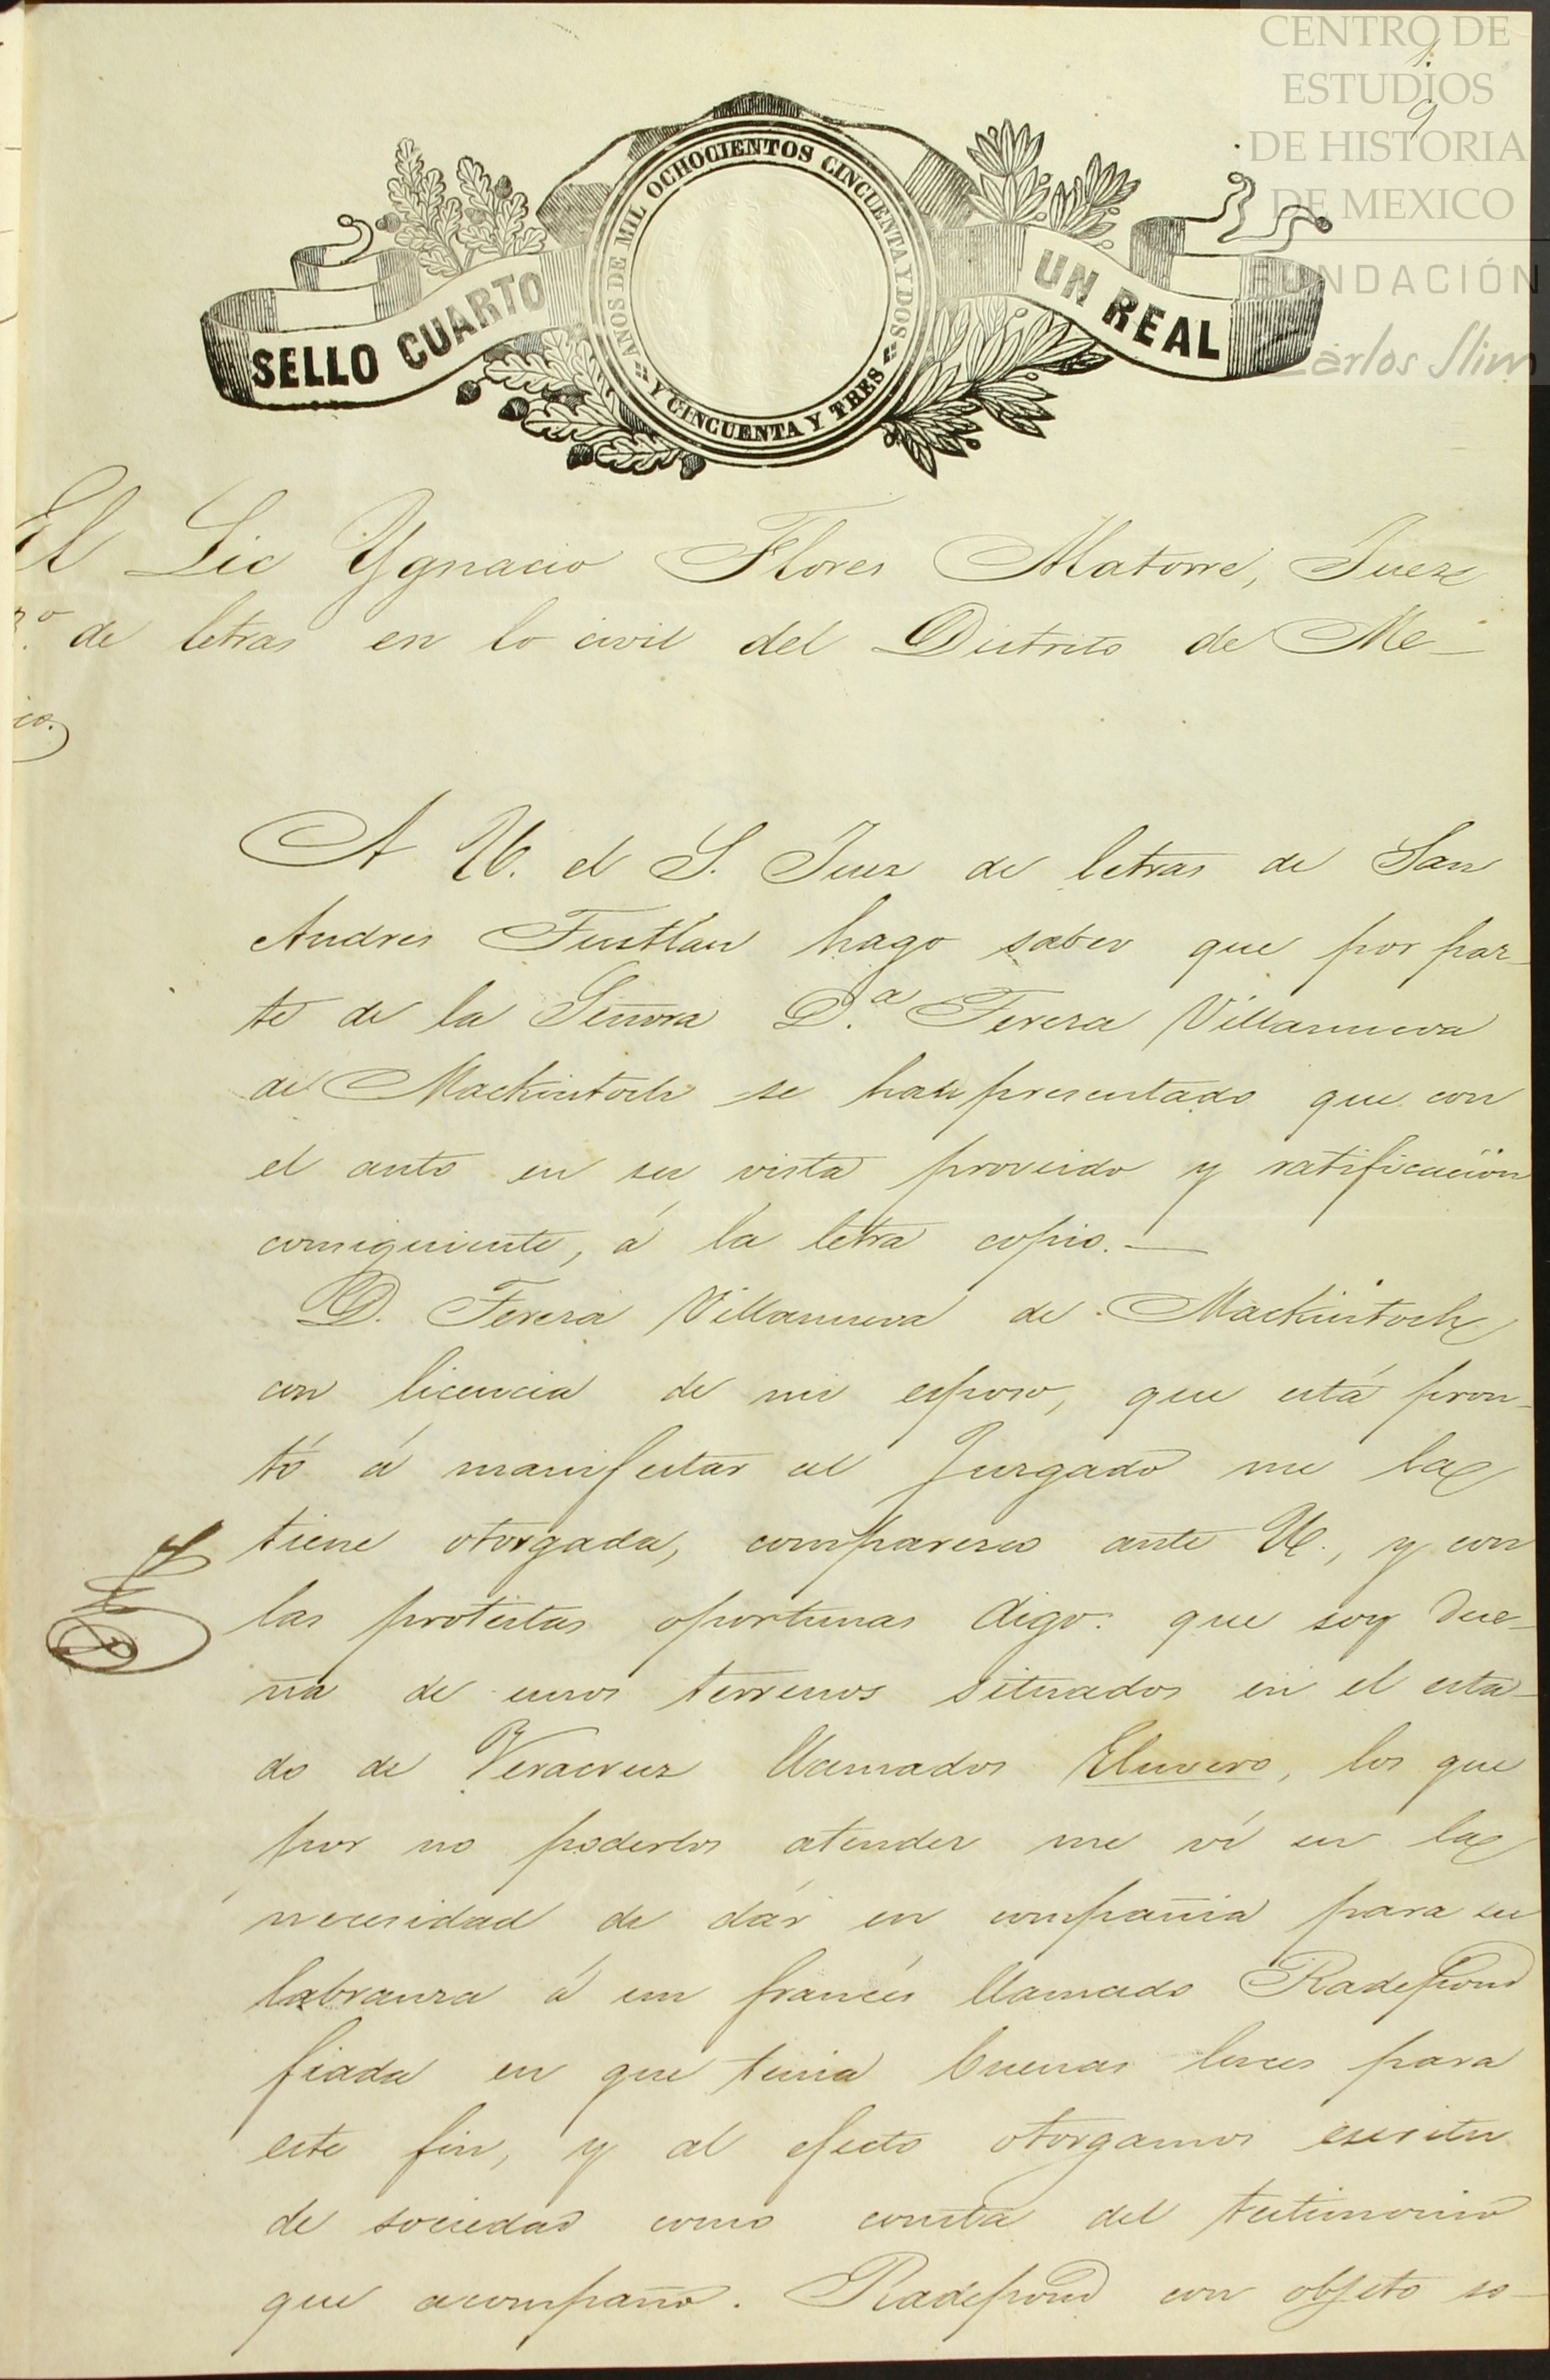 CENTRO DE
ESTUDIOS
DE HISTORIA
DE MEXICO
FUNDACIÓN
Carlos Slim
SELLO CUARTO
AÑOS DE MIL OCHOCIENTOS CINCUENTA Y DOS
Y CINCUENTA Y TRES
UN REAL
El Lic Ygnacio Flores Alatorre, Juez
3.º de letras en lo civil del Distrito de Me-
ico.
A V. el S. Juez de letras de San
Andres Tustlan hago saber que por par-
te de la Señora D.ª Teresa Villanueva
de Mackintosh se ha presentado que con
el auto en su vista proveido y ratificacion
consiguiente, á la letra copio.—
D. Teresa Villanueva de Mackintosh
con licencia de mi esposo, que está pron-
tó á manifestar al Juzgado me la
tiene otorgada, comparesco ante V., y con
las protestas oportunas digo: que soy due-
ña de unos terrenos situados en el esta-
do de Veracruz llamados Eluvero, los que
por no poderlos atender me ví en la
necesidad de dár en compañia para su
labranza á un francés llamado Radepond
fiada en que tenia buenas luces para
este fin, y al efecto otorgamos escritu
de sociedad como consta del testimonio
que acompaño. Radepond con objeto so-